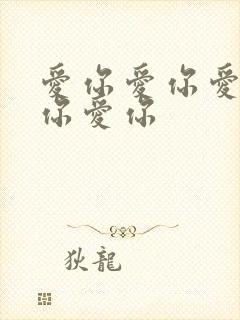 愛你愛你愛
你愛你
狄龍